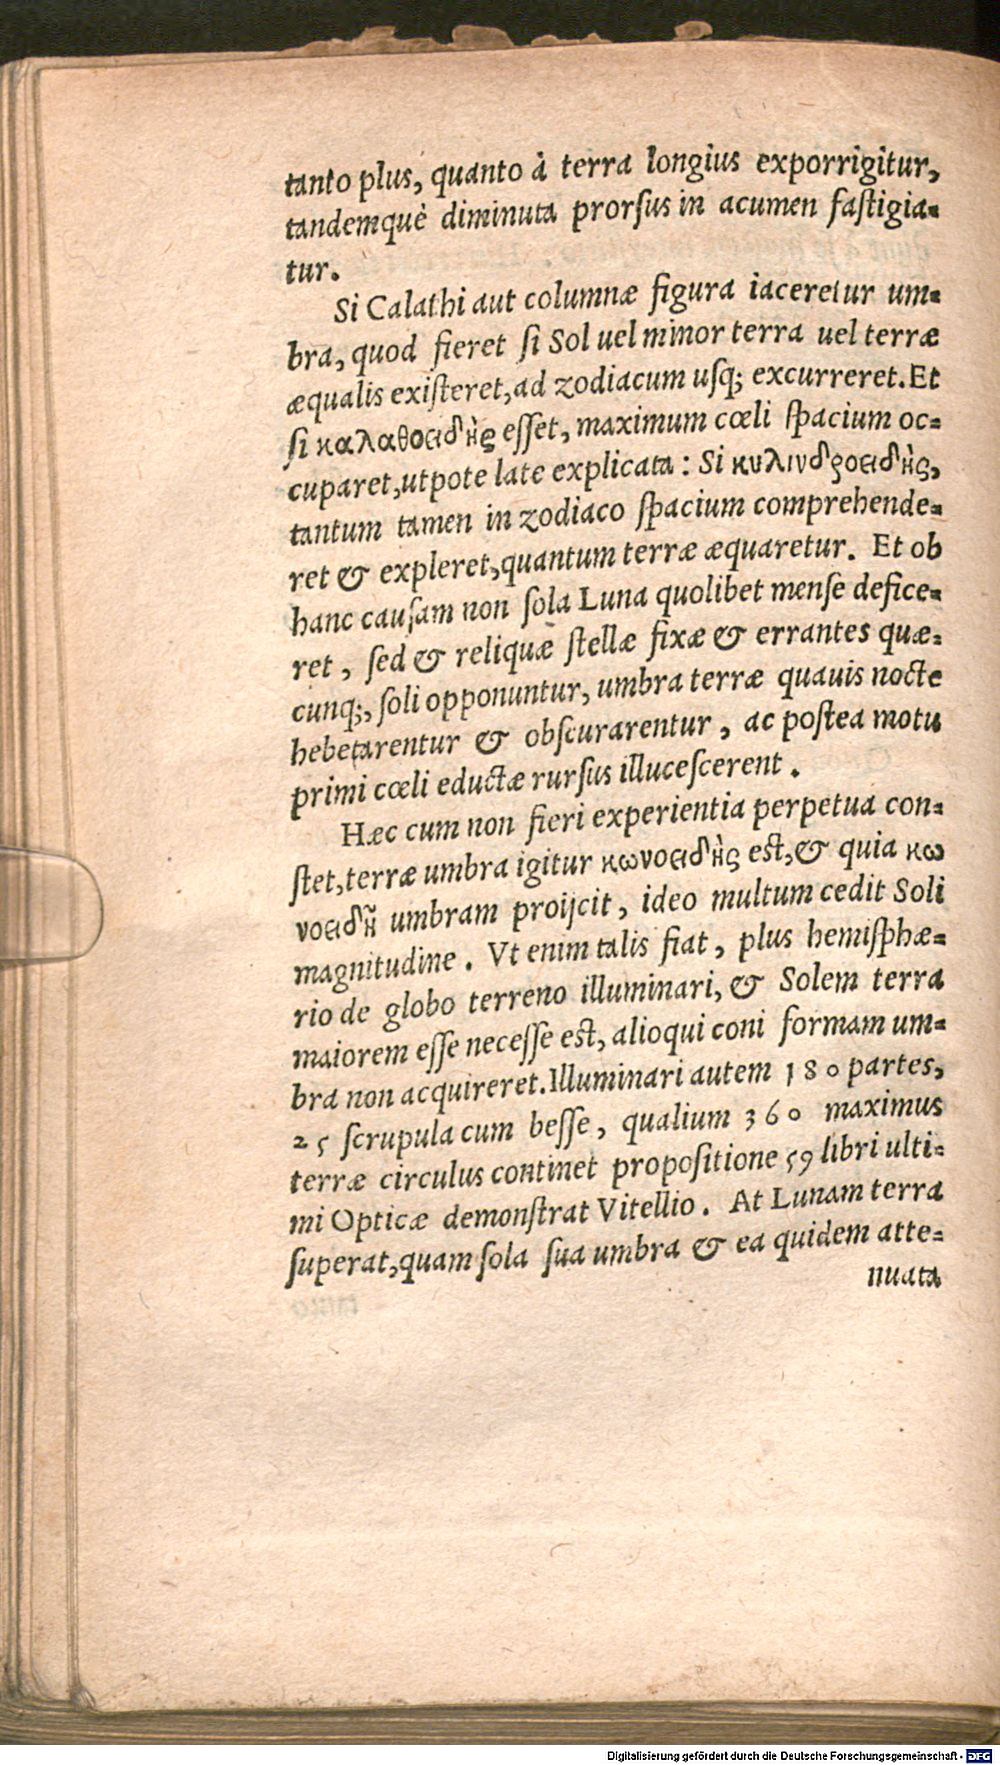 tanto plus, quanto à terra longius exporrigitur,
tandemquè diminuta prorſus in acumen faſtigia-
tur.
Si Calathi aut columnæ figura iaceretur um-
bra, quod fieret ſi Sol uel minor terra uel terræ
æqualis exiſteret, ad zodiacum uſq; excurreret. Et
ſi καλαθοειδὴς eſſet, maximum cœli ſpacium oc-
cuparet, utpote late explicata : Si κυλινδροειδὴς,
tantum tamen in zodiaco ſpacium comprehende-
ret & expleret, quantum terræ æquaretur. Et ob
hanc cauſam non ſola Luna quolibet menſe defice-
ret, ſed & reliquæ ſtellæ fixæ & errantes quæ-
cunq;, ſoli opponuntur, umbra terræ quauis nocte
hebetarentur & obſcurarentur, ac poſtea motu
primi cœli eductæ rurſus illuceſcerent.
Hæc cum non fieri experientia perpetua con-
ſtet, terræ umbra igitur κωνοειδὴς eſt, & quia κω
νοειδῆ umbram proijcit, ideo multum cedit Soli
magnitudine. Vt enim talis fiat, plus hemiſphæ-
rio de globo terreno illuminari, & Solem terra
maiorem eſſe neceſſe eſt, alioqui coni formam um-
bra non acquireret. Illuminari autem 180 partes,
25 ſcrupula cum beſſe, qualium 360 maximus
terræ circulus continet propoſitione 59 libri ulti-
mi Opticæ demonſtrat Vitellio. At Lunam terra
ſuperat, quam ſola ſua umbra & ea quidem atte-
nuata
Digitalisierung gefördert durch die Deutsche Forschungsgemeinschaft - DFG